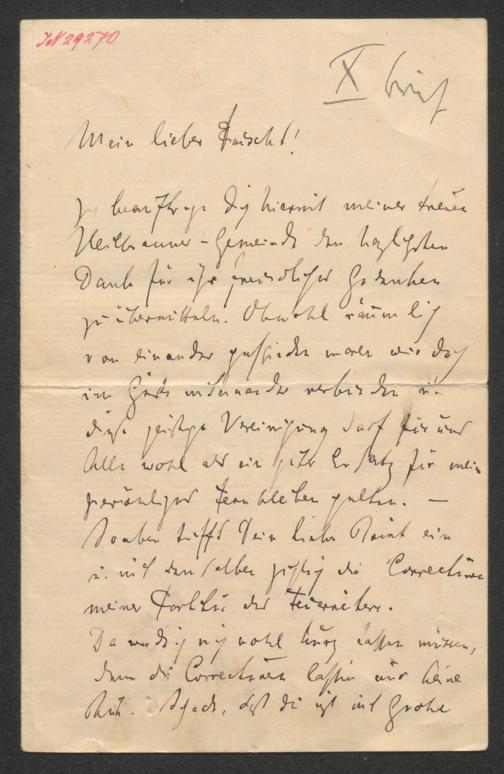 IN 29270
X Brief
Mein lieber Faisst!
Ich beauftrage Dich hiermit meiner treuen
Heilbronner-Gemeinde den herzlichsten
Dank für ihr freundliches Gedenken
zu übermitteln. Obwohl räumlich
von einander geschieden waren wir doch
im Geiste miteinander verbunden u.
diese geistige Vereinigung darf für uns
Alle wohl als ein guter Ersatz für mein
persönliches Fernbleiben gelten. —
Soeben trifft Dein lieber Brief ein
u. mit demselben zugleich die Correcturen
meiner Partitur des Feuerreiters.
Da werd ich mich wohl kurz fassen müssen,
denn die Correcturen lassen mir keine
Ruh. Schade, daß Du nicht mit Grohe